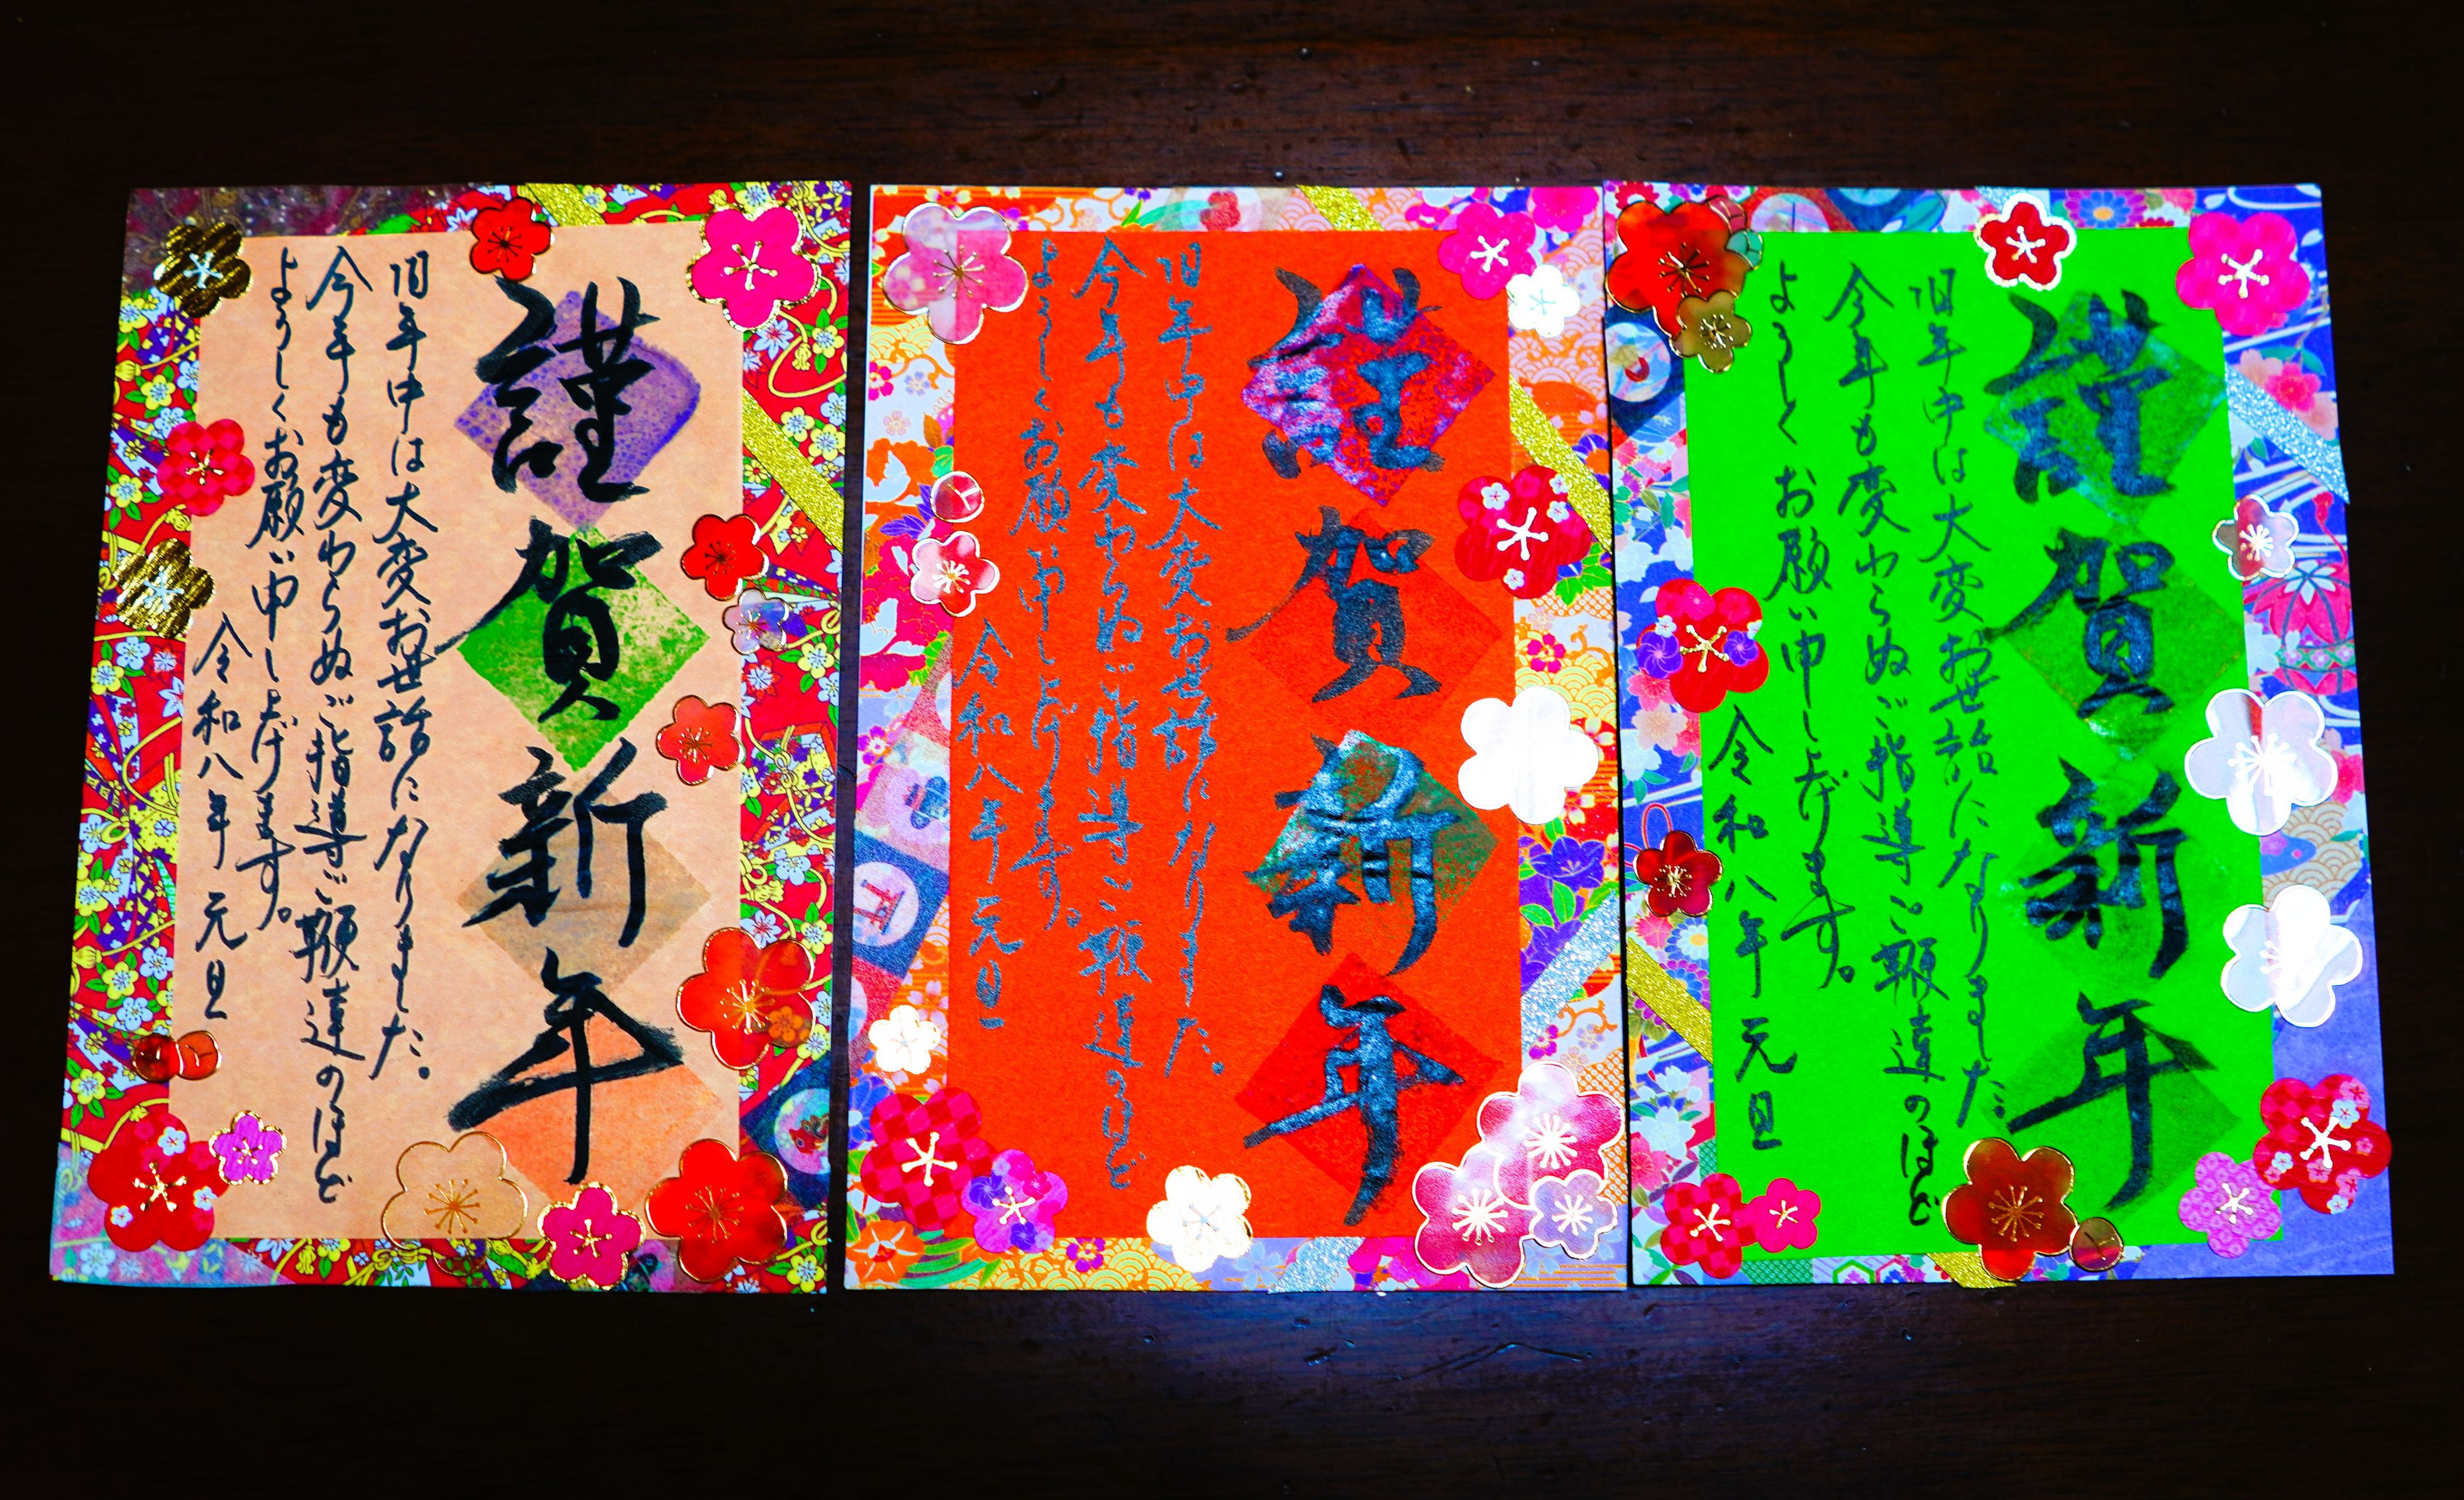 謹賀新年
旧年中は大変お世話になりました。
今年も変わらぬご指導ご鞭達のほど
よろしくお願い申し上げます。
令和八年元旦
謹賀新年
旧年中は大変お世話になりました。
今年も変わらぬご指導ご鞭達のほど
よろしくお願い申し上げます。
令和八年元旦
謹賀新年
旧年中は大変お世話になりました。
今年も変わらぬご指導ご鞭達のほど
よろしくお願い申し上げます。
令和八年元旦